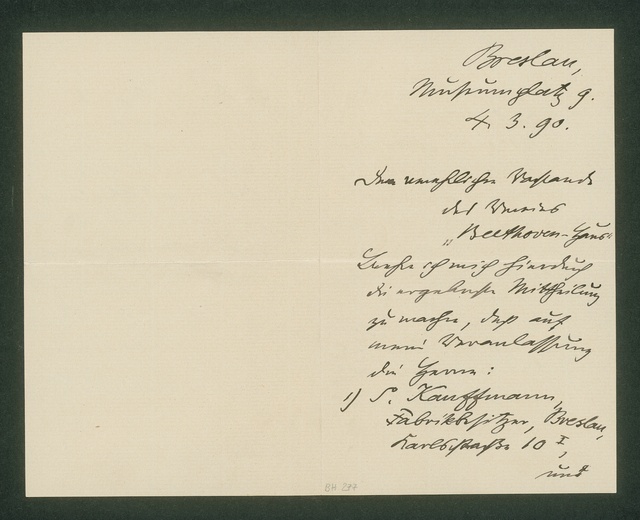 Breslau,
Museumplatz 9.
4. 3. 90.
Dem verehrlichen Vorstande
des Vereins
„Beethoven-Haus"
beehre ich mich hierdurch
die ergebenste Mittheilung
zu machen, daß auf
meine Veranlassung
die Herren:
1) S. Kauffmann,
Fabrikbesitzer, Breslau,
Carlsstraße 10 I,
und
BH 237